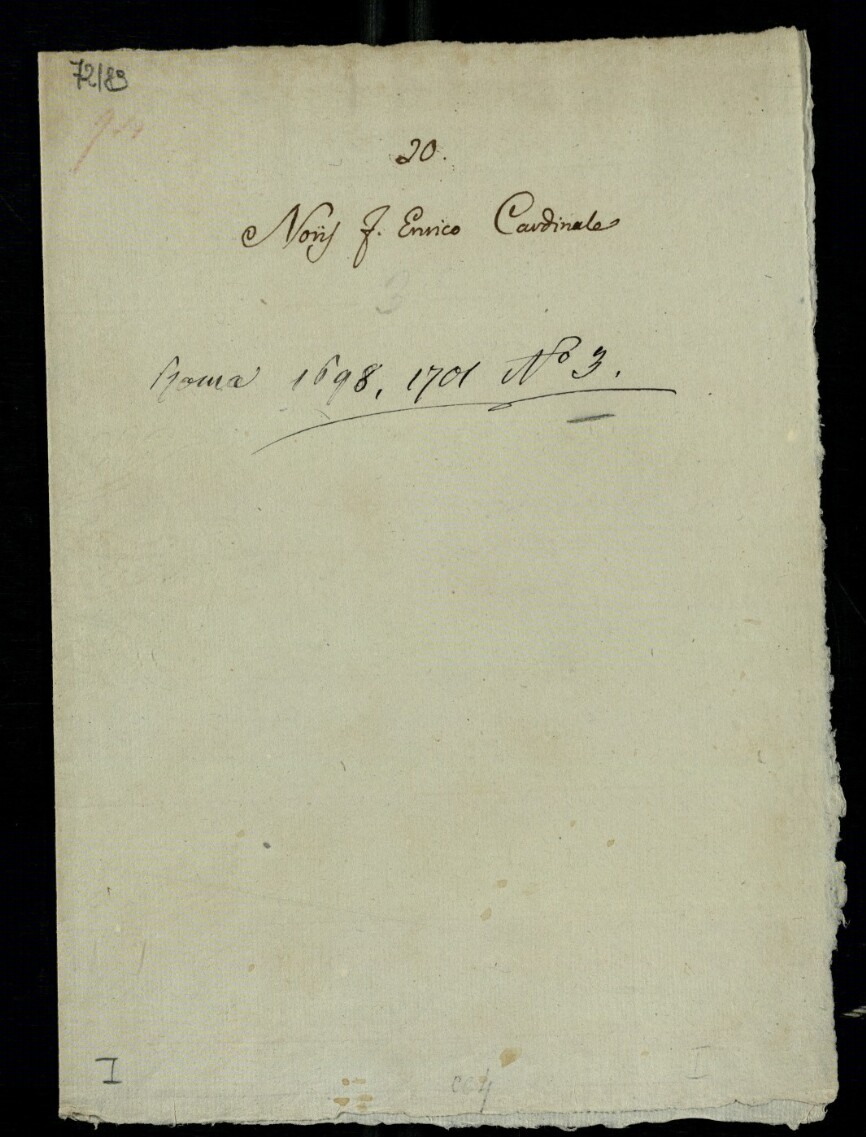 72/83
20.
Noris F. Enrico Cardinale
3
Roma 1698, 1701 No 3.
I
I